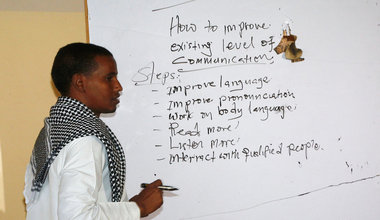 How to improve
existing level of
Communication.
Steps:
- Improve language
- Improve pronunciation
- Work on body language.
- Read more!
- Listen more!
- Interract with qualified people.